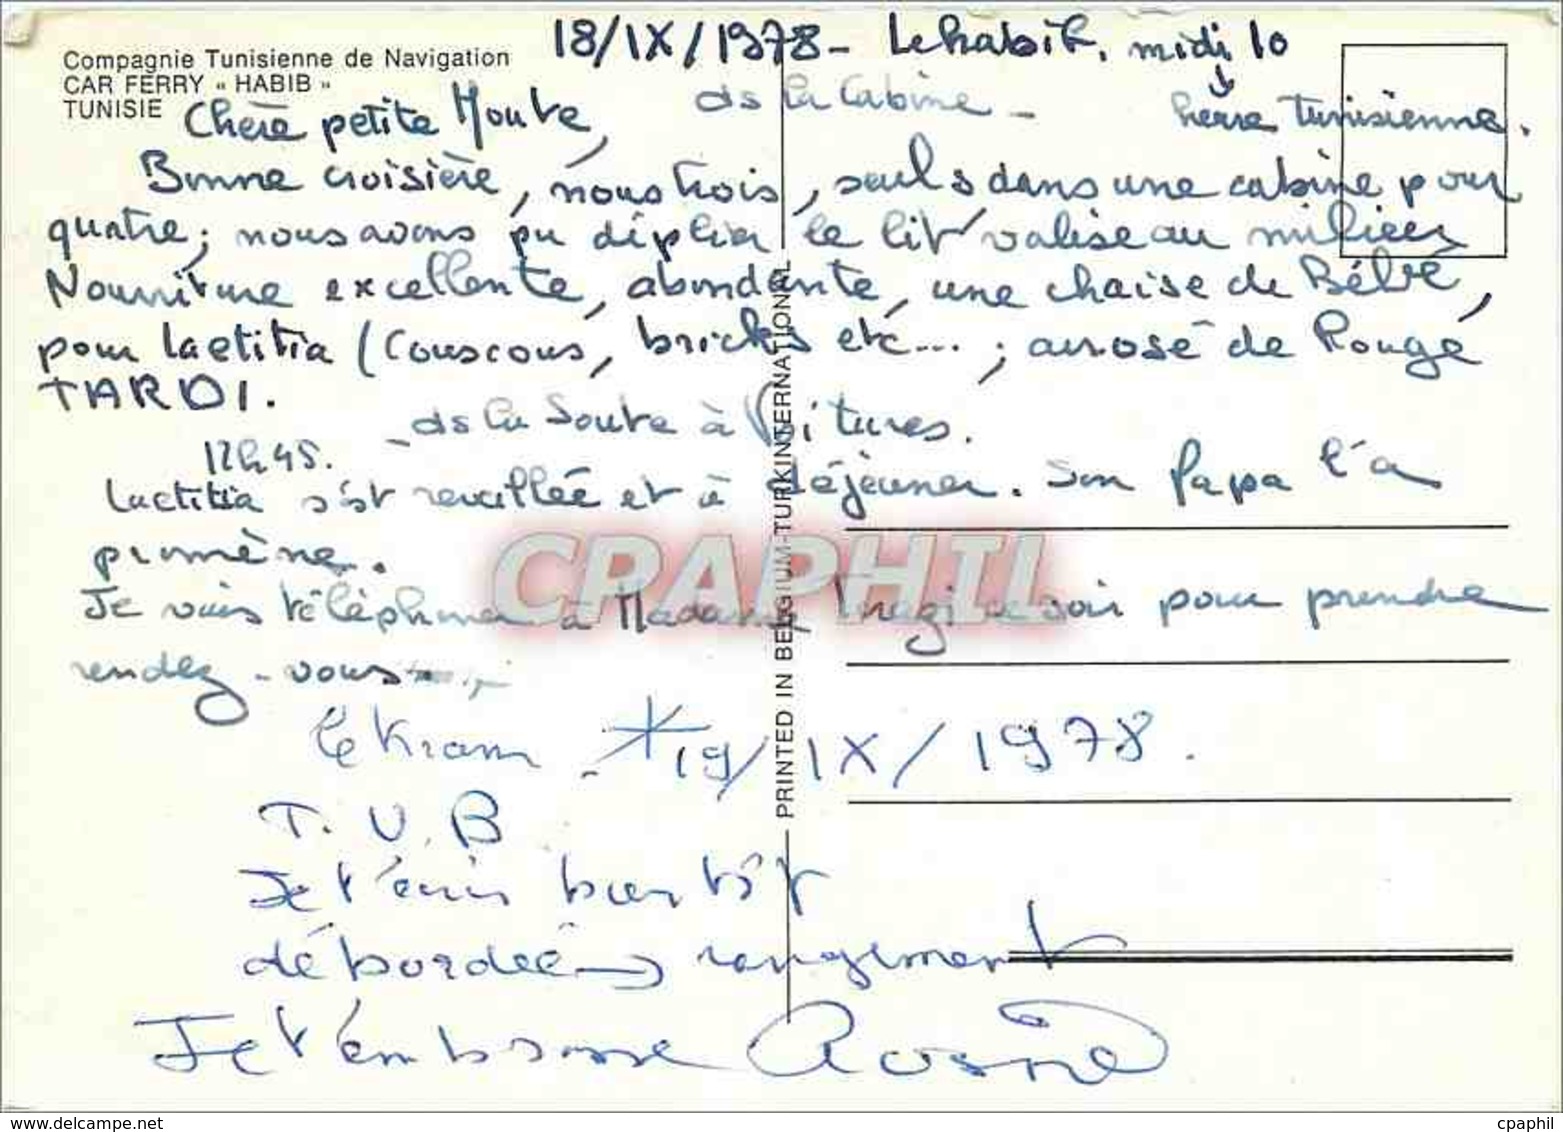 18/IX/1978 - Le habib, midi 10
Compagnie Tunisienne de Navigation
CAR FERRY « HABIB »
TUNISIE
ds la Cabine -
heure Tunisienne.
Chère petite
Bonne croisière, nous trois, seuls dans une cabine pour
quatre; nous avons pu déplier le lit valise au milieu
Nourriture excellente, abondante, une chaise de Bébé,
pour Laetitia (Couscous, bricks etc...; arrosé de Rouge
TARDI.
- ds la Soute à Voitures.
12h45.
Laetitia s'est reveillée et à déjeuner. Son Papa l'a
promène.
Je vais téléphoner à Madame ce soir pour prendre
rendez-vous
Le Kram 19/IX/1978.
T.V.B
Je t'écris bientôt
débordée rangement
Je t'embrasse
PRINTED IN BELGIUM-TURKINTERNATIONAL
CPAPHIL
www.delcampe.net
cpaphil